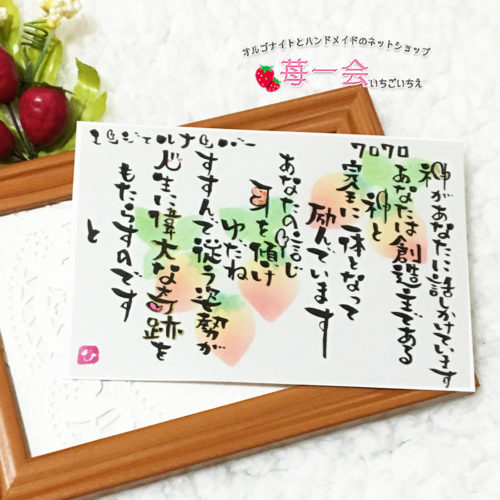 オルゴナイトとハンドメイドのネットショップ
苺一会
いちごいちえ
7070
神があなたに話しかけています
あなたは創造主である
神と
完全に一体となって
励んでいます
あなたの信じ
耳を傾け
ゆだね
すすんで従う姿勢が
人生に偉大な奇跡を
もたらすのです
と